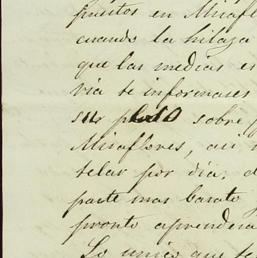 puntos en Miraflo
cuando la hilaza
que las medias es
via te informases
su sobre
Miraflores, asi
telar por dia, d
parte mas barato
pronto aprendera
Lo unico que te